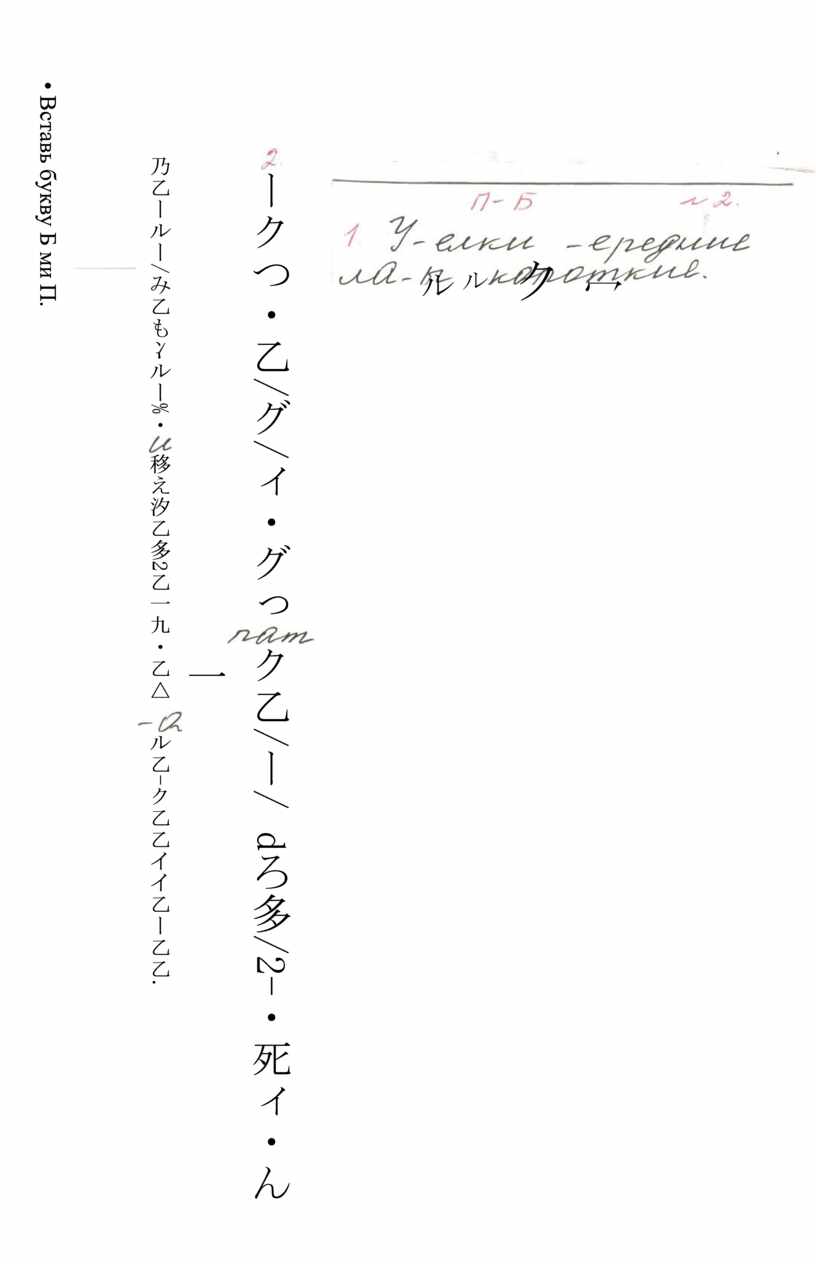 • Вставь букву Б ми П.
П-Б л 2.
1 У-елки -ередние
ла-к короткие.
ルルク
2.
ークつ・乙/グ/イ・グっ
ク乙/ー/ dろ多/2-・死ィ・ん
一
乃乙ールー/み乙もγルー%・
и
移え汐乙多2乙一九・乙△
ル乙-ク乙乙イイ乙ー乙乙.